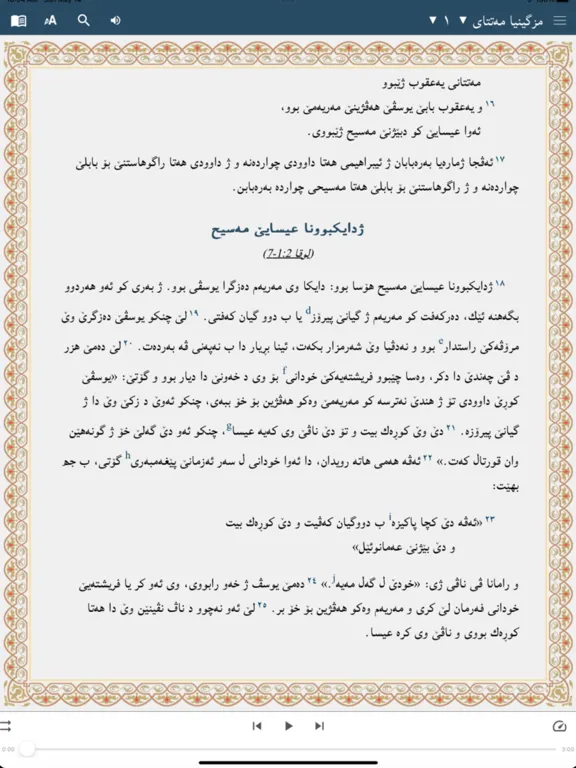 مزگینیا مه‌تتای ▼ ١ ▼
مه‌تتانی یه‌عقوب ژێبوو
١٦ و یه‌عقوب بابێ یوسڤێ هه‌ڤژینێ مریه‌مێ بوو،
ئه‌وا عیسایێ کو دبێژنێ مه‌سیح ژێبووی.
١٧ ئه‌ڤجا ژماره‌یا به‌ره‌بابان ژ ئیبراهیمی هه‌تا داوودی چوارده‌نه و ژ داوودی هه‌تا راگوهاستنێ بۆ بابلێ
چوارده‌نه و ژ راگوهاستنێ بۆ بابلێ هه‌تا مه‌سیحی چوارده به‌ره‌بابن.
ژدایکبوونا عیسایێ مه‌سیح
(لوقا 2:‏1-7)
١٨ ژدایکبوونا عیسایێ مه‌سیح هۆسا بوو: دایکا وی مه‌ریه‌م ده‌زگرا یوسڤی بوو. ژ به‌ری کو ئه‌و هه‌ردوو
بگه‌هنه ئێك، ده‌رکه‌فت کو مه‌ریه‌م ژ گیانێ پیرۆزd یا ب دوو گیان که‌فتی. ١٩ لێ چنکو یوسڤێ ده‌زگرێ وێ
مرۆڤه‌کێ راستدارe بوو و نه‌دڤیا وێ شه‌رمزار بکه‌ت، ئینا بڕیار دا ب نه‌په‌نی ڤه به‌رده‌ت. ٢٠ لێ ده‌مێ هزر
د ڤێ چه‌ندێ دا دکر، وه‌سا چێبوو فریشته‌یه‌کێ خودانیf بۆ وی د خه‌ونێ دا دیار بوو و گۆتێ: «یوسڤێ
کوڕێ داوودی تۆ ژ هندێ نه‌ترسه کو مه‌ریه‌مێ وه‌کو هه‌ڤژین بۆ خۆ ببه‌ی، چنکو ئه‌وێ د زکێ وێ دا ژ
گیانێ پیرۆزه. ٢١ دێ وێ کوڕه‌ك بیت و تۆ دێ ناڤێ وی که‌یه عیساg، چنکو ئه‌و دێ گه‌لێ خۆ ژ گونه‌هێن
وان قورتال که‌ت.» ٢٢ ئه‌ڤه هه‌می هاته رویدان، دا ئه‌وا خودانی ل سه‌ر ئه‌زمانێ پێغه‌مبه‌ریh گۆتی، ب جه
بهێت:
٢٣ «ئه‌ڤه دێ کچا پاکیزهi ب دووگیان که‌ڤیت و دێ کوڕه‌ك بیت
و دێ بێژنێ عه‌مانوئێل»
و رامانا ڤی ناڤی ژی: «خودێ ل گه‌ل مه‌یهj.» ٢٤ ده‌مێ یوسڤ ژ خه‌و رابووی، وی ئه‌و کر یا فریشته‌یێ
خودانی فه‌رمان لێ کری و مه‌ریه‌م وه‌کو هه‌ڤژین بۆ خۆ بر. ٢٥ لێ ئه‌و نه‌چوو د ناڤ نڤینێن وێ دا هه‌تا
کوڕه‌ك بووی و ناڤێ وی کره عیسا.
0:00
3:03